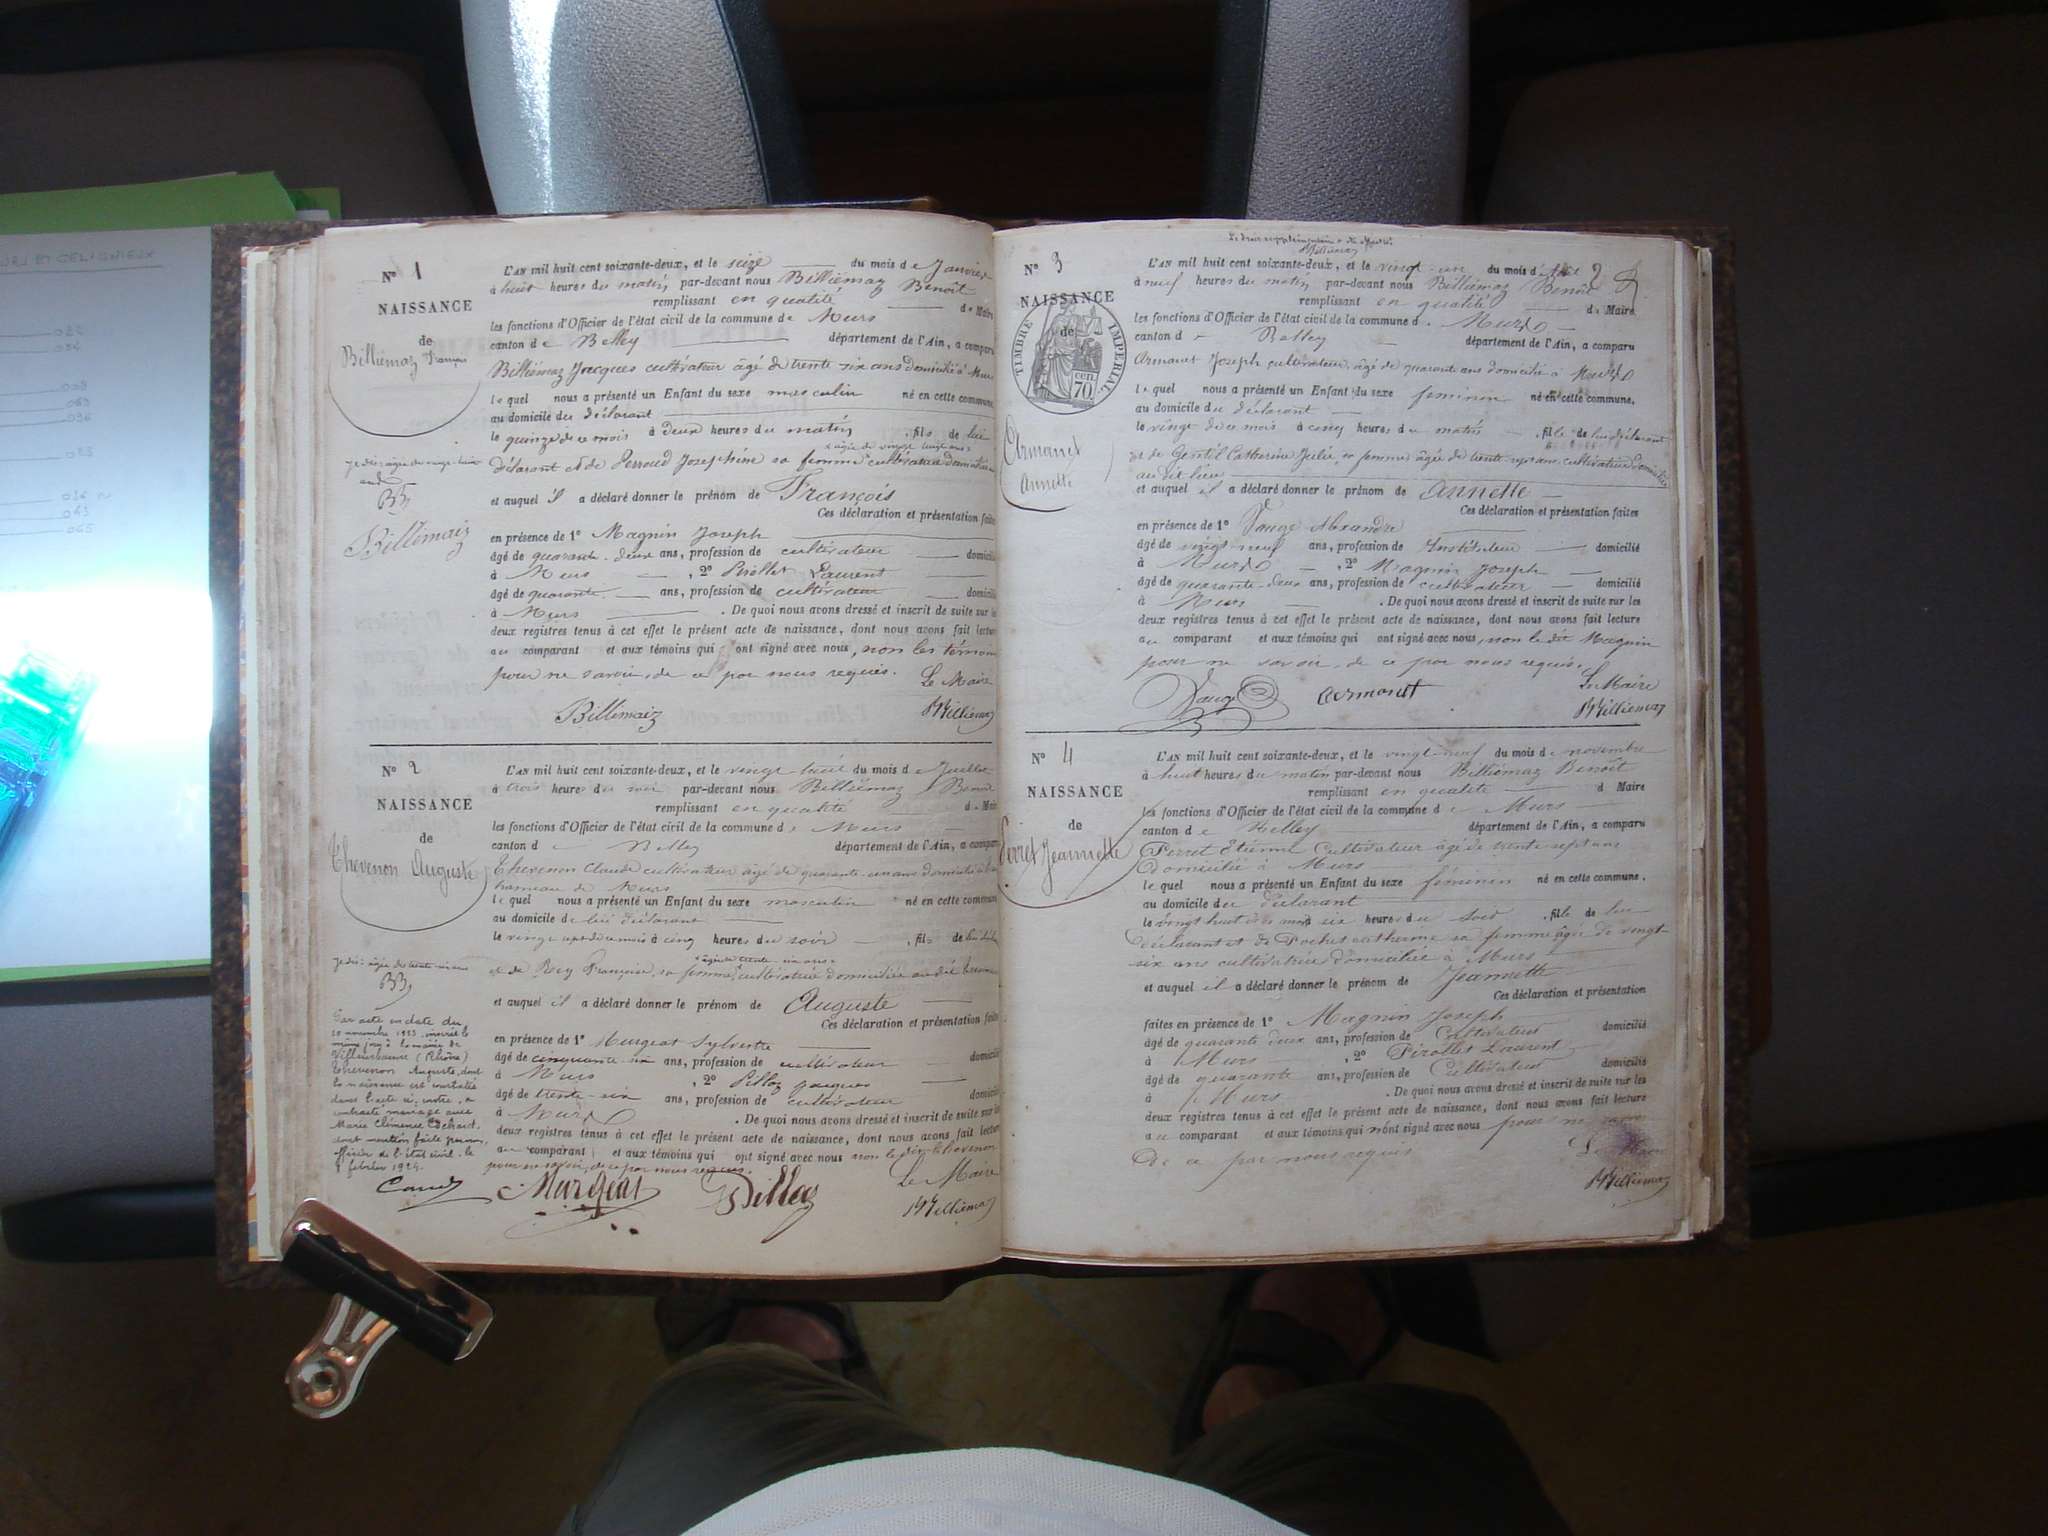 URS ET CELIGNIEUX
Nº 1
NAISSANCE
de
Billiémaz François
L'AN mil huit cent soixante-deux, et le seize du mois de Janvier
à huit heures du matin, par-devant nous Billiémaz Benoît
remplissant en qualité de Maire
les fonctions d'Officier de l'état civil de la commune de Murs
canton de Belley département de l'Ain, a comparu
Billiémaz Jacques cultivateur âgé de trente six ans domicilié à Murs
lequel nous a présenté un Enfant du sexe masculin né en cette commune,
au domicile du déclarant
le quinze de ce mois à deux heures du matin, fils de lui
âgée de vingt huit ans
déclarant et de Perroud Josephine sa femme cultivatrice
et auquel il a déclaré donner le prénom de François
Ces déclaration et présentation faites
en présence de 1º Magnin Joseph
âgé de quarante-deux ans, profession de cultivateur domicilié
à Murs, 2º Pirollet Laurent
âgé de quarante ans, profession de cultivateur domicilié
à Murs. De quoi nous avons dressé et inscrit de suite sur les
deux registres tenus à cet effet le présent acte de naissance, dont nous avons fait lecture
au comparant et aux témoins qui ont signé avec nous, non les témoins
pour ne savoir, de ce par nous requis. Le Maire
Billiemaiz BBilliémaz
BB
Billiemaiz
Nº 2
NAISSANCE
de
Thevenon Auguste
L'AN mil huit cent soixante-deux, et le vingt huit du mois de Juillet
à trois heures du soir par-devant nous Billiémaz Benoît
remplissant en qualité de Maire
les fonctions d'Officier de l'état civil de la commune de Murs
canton de Belley département de l'Ain, a comparu
Thevenon Claude cultivateur âgé de quarante-un ans domicilié
hameau de Murs
lequel nous a présenté un Enfant du sexe masculin né en cette commune
au domicile de lui déclarant
le vingt sept de ce mois à cinq heures du soir, fils de lui
âgée de trente-six ans
et de Rey Françoise, sa femme, cultivatrice domiciliée au dit hameau
et auquel il a déclaré donner le prénom de Auguste
Ces déclaration et présentation faites
en présence de 1º Murgeat Sylvestre
âgé de cinquante-six ans, profession de cultivateur domicilié
à Murs, 2º Pillaz Jacques
âgé de trente-six ans, profession de cultivateur domicilié
à Murs. De quoi nous avons dressé et inscrit de suite sur les
deux registres tenus à cet effet le présent acte de naissance, dont nous avons fait lecture
au comparant et aux témoins qui ont signé avec nous non le dit Thevenon
pour ne savoir, de ce par nous requis.
Le Maire
Murgeat Pillaz BBilliémaz
BB
Par acte en date du
10 novembre 1923, inscrit le
même jour à la mairie de
Villeurbanne (Rhône)
Thevenon Auguste, dont
la naissance est constatée
dans l'acte ci-contre, a
contracté mariage avec
Marie Clémence
dont mention faite par nous,
officier de l'état civil, le
février 1924.
Nº 3
NAISSANCE
de
TIMBRE IMPERIAL
70 cen.
Armanet
Annette
Billiémaz
L'AN mil huit cent soixante-deux, et le vingt-un du mois d
à neuf heures du matin, par-devant nous Billiémaz Benoît
remplissant en qualité de Maire
les fonctions d'Officier de l'état civil de la commune d Murs
canton d Belley département de l'Ain, a comparu
Armanet Joseph, cultivateur, âgé de quarante ans domicilié à Murs
lequel nous a présenté un Enfant du sexe feminin né en cette commune,
au domicile du déclarant
le vingt de ce mois à cinq heures du matin, fille de lui déclarant
et de Gentil Catherine Julie, sa femme âgée de trente-sept ans, cultivatrice domiciliée
au dit lieu
et auquel il a déclaré donner le prénom de Annette
Ces déclaration et présentation faites
en présence de 1º Vauge Alexandre
âgé de vingt-neuf ans, profession de Instituteur domicilié
à Murs, 2º Magnin Joseph
âgé de quarante-deux ans, profession de cultivateur domicilié
à Murs. De quoi nous avons dressé et inscrit de suite sur les
deux registres tenus à cet effet le présent acte de naissance, dont nous avons fait lecture
au comparant et aux témoins qui ont signé avec nous, non le dit Magnin
pour ne savoir, de ce par nous requis.
Le Maire
Vauge Armanet BBilliémaz
Nº 4
NAISSANCE
de
Perret Jeannette
L'AN mil huit cent soixante-deux, et le vingt-neuf du mois de novembre
à huit heures du matin par-devant nous Billiémaz Benoît
remplissant en qualité d Maire
les fonctions d'Officier de l'état civil de la commune de Murs
canton de Belley département de l'Ain, a comparu
Perret Etienne Cultivateur âgé de trente-sept ans
Domicilié à Murs
lequel nous a présenté un Enfant du sexe féminin né en cette commune,
au domicile du déclarant
le vingt huit de ce mois six heures du soir, fille de lui
déclarant et de Pochet Catherine sa femme âgée de vingt
six ans cultivatrice domiciliée à Murs
et auquel il a déclaré donner le prénom de Jeannette
Ces déclaration et présentation
faites en présence de 1º Magnin Joseph
âgé de quarante deux ans, profession de Cultivateur domicilié
à Murs, 2º Pirollet Laurent
âgé de quarante ans, profession de Cultivateur domicilié
à Murs. De quoi nous avons dressé et inscrit de suite sur les
deux registres tenus à cet effet le présent acte de naissance, dont nous avons fait lecture
au comparant et aux témoins qui n'ont signé avec nous pour ne savoir
De ce par nous requis
Le Maire
BBilliémaz